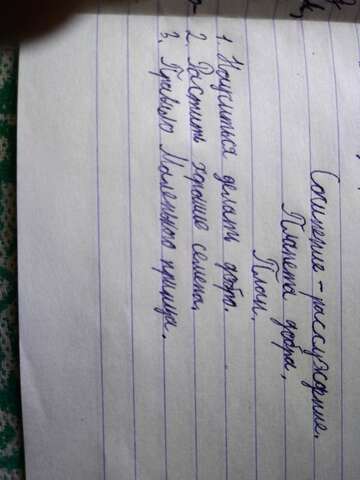 Сочинение - рассуждение.
Планета добра.
План.
1. Научиться делать добро.
2. Растить хорошие семена.
3. Правило Маленького принца.